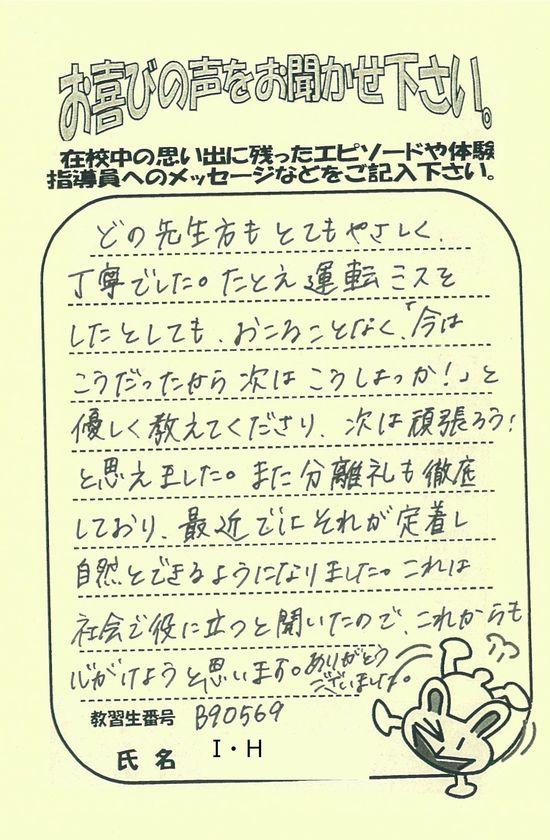 お喜びの声をお聞かせ下さい。
在校中の思い出に残ったエピソードや体験
指導員へのメッセージなどをご記入下さい。
どの先生方もとてもやさしく、
丁寧でした。たとえ運転ミスを
したとしても、おこることなく、「今は
こうだったから次はこうしよっか!」と
優しく教えてくださり、次は頑張ろう!
と思えました。また分離礼も徹底
しており、最近ではそれが定着し
自然とできるようになりました。これは
社会で役に立つと聞いたので、これからも
心がけようと思います。ありがとう
ございました。
教習生番号 B90569
氏名 I・H